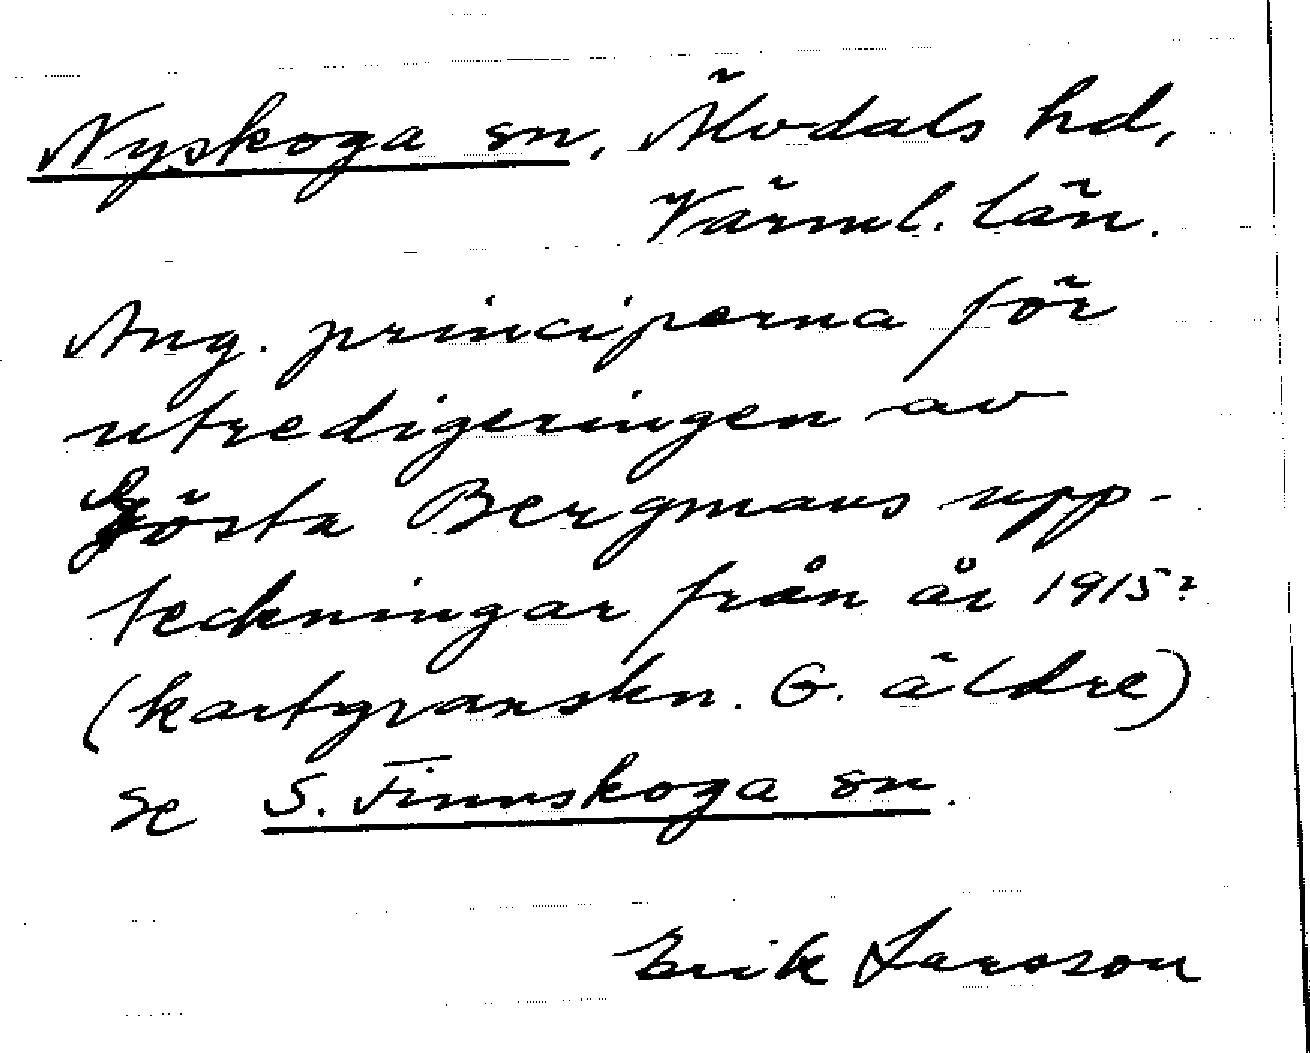 Nyskoga sn, Älvdals hd,
Värml. län.
Ang. principerna för
utredigeringen av
Gösta Bergmans upp-
teckningar från år 1915?
(kartgranskn. G. äldre)
se S. Finnskoga sn.
Erik Larsson